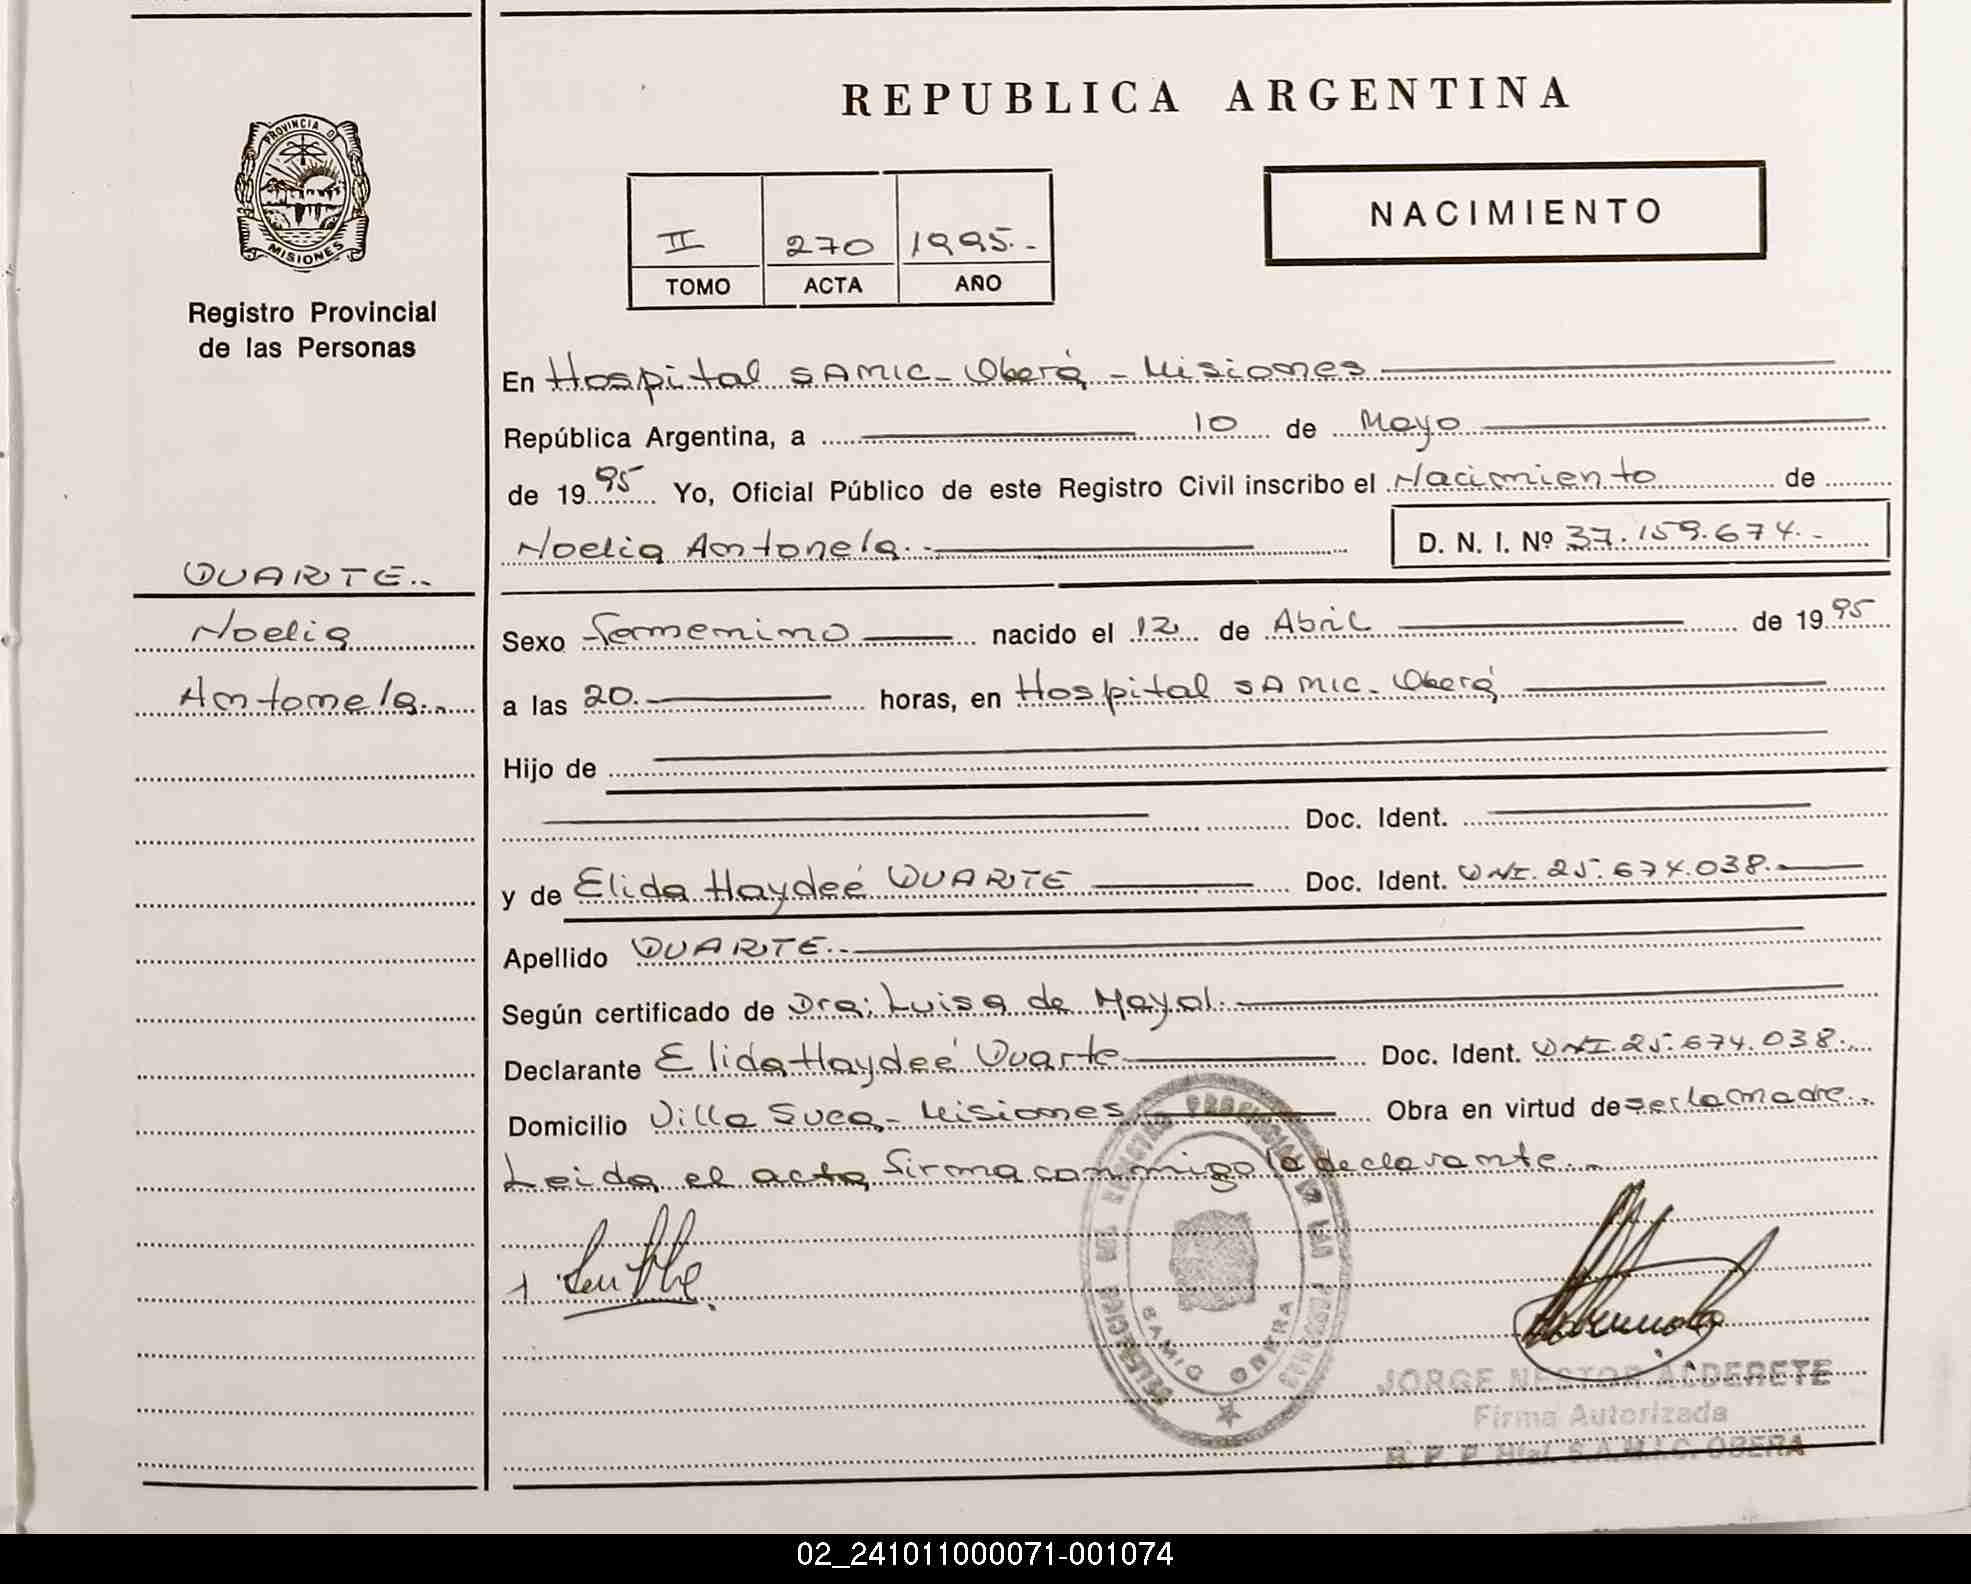 REPUBLICA ARGENTINA
PROVINCIA D
MISIONES
Registro Provincial
de las Personas
II 270 1995.-
TOMO ACTA AÑO
NACIMIENTO
En Hospital SAMIC - Oberá - Misiones
República Argentina, a 10 de Mayo
de 19 95 Yo, Oficial Público de este Registro Civil inscribo el Nacimiento de
Noelia Antonela.- D. N. I. Nº 37.159.674.-
DUARTE.-
Noelia
Antonela.-
Sexo femenino nacido el 12 de Abril de 19 95
a las 20. horas, en Hospital SAMIC - Oberá
Hijo de
Doc. Ident.
y de Elida Haydeé DUARTE Doc. Ident. DNI. 25.674.038.-
Apellido DUARTE.-
Según certificado de Dra: Luisa de Mayol.
Declarante Elida Haydeé Duarte Doc. Ident. DNI. 25.674.038.-
Domicilio Villa Svea - Misiones Obra en virtud de ser la madre.-
Leida el acta firma conmigo la declarante.-
SAMIC OBERA
JORGE NESTOR ALDERETE
Firma Autorizada
R. P. P. Htal. S.A.M.I.C. OBERA
02_241011000071-001074